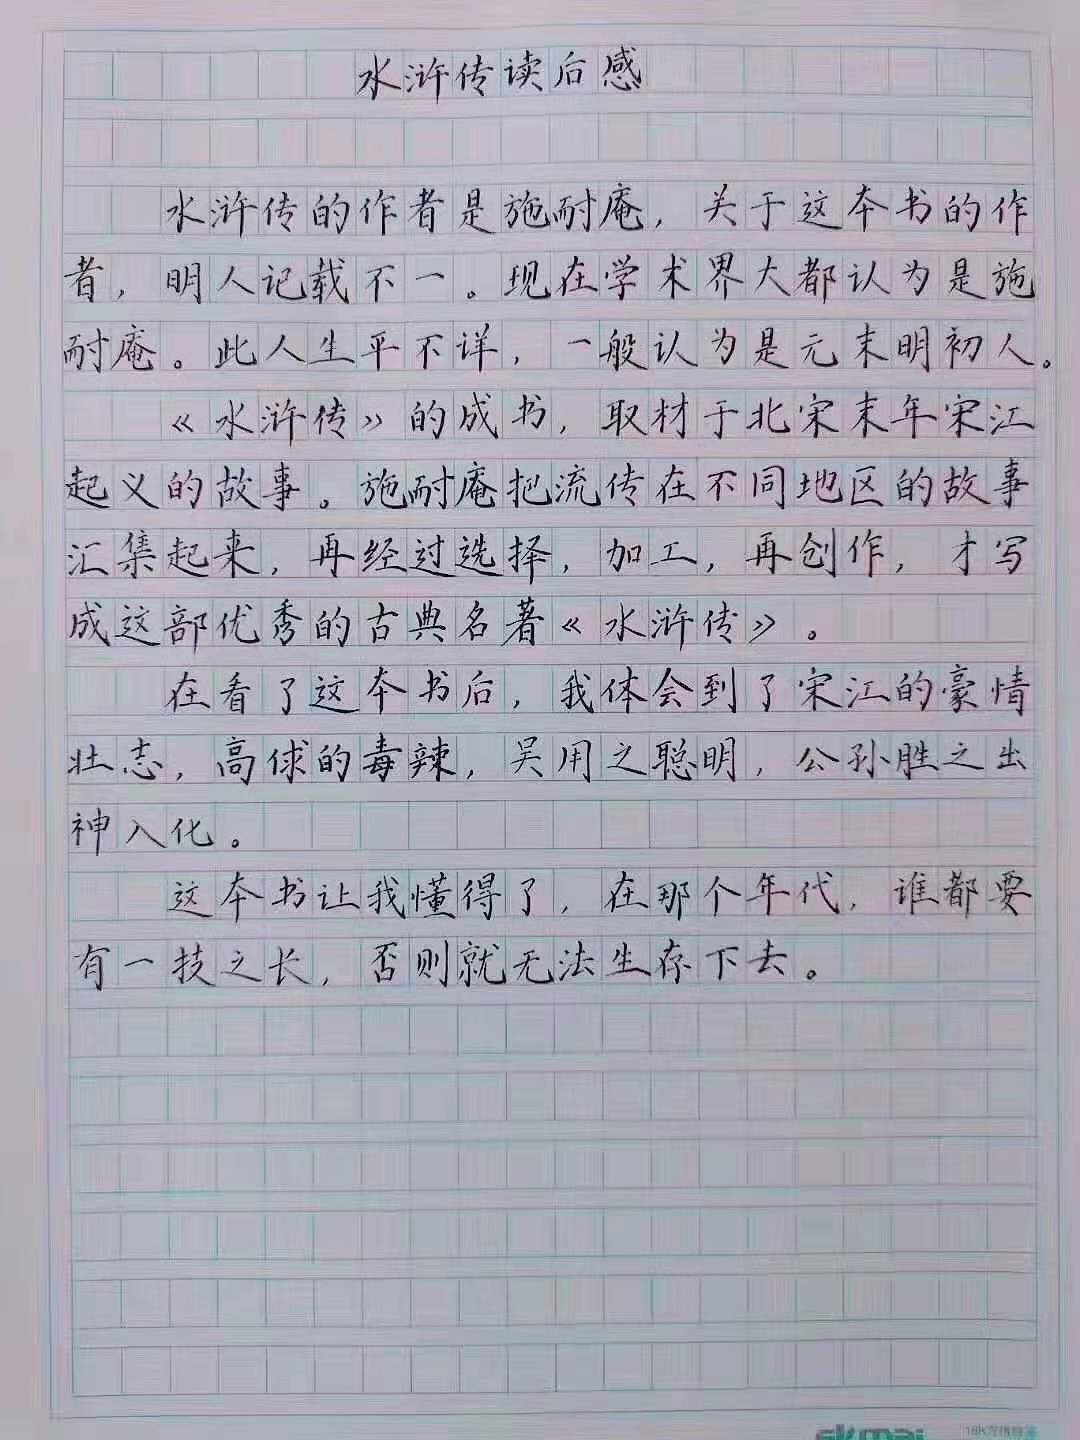 水浒传读后感
水浒传的作者是施耐庵，关于这本书的作
者，明人记载不一。现在学术界大都认为是施
耐庵。此人生平不详，一般认为是元末明初人。
《水浒传》的成书，取材于北宋末年宋江
起义的故事。施耐庵把流传在不同地区的故事
汇集起来，再经过选择，加工，再创作，才写
成这部优秀的古典名著《水浒传》。
在看了这本书后，我体会到了宋江的豪情
壮志，高俅的毒辣，吴用之聪明，公孙胜之出
神入化。
这本书让我懂得了，在那个年代，谁都要
有一技之长，否则就无法生存下去。